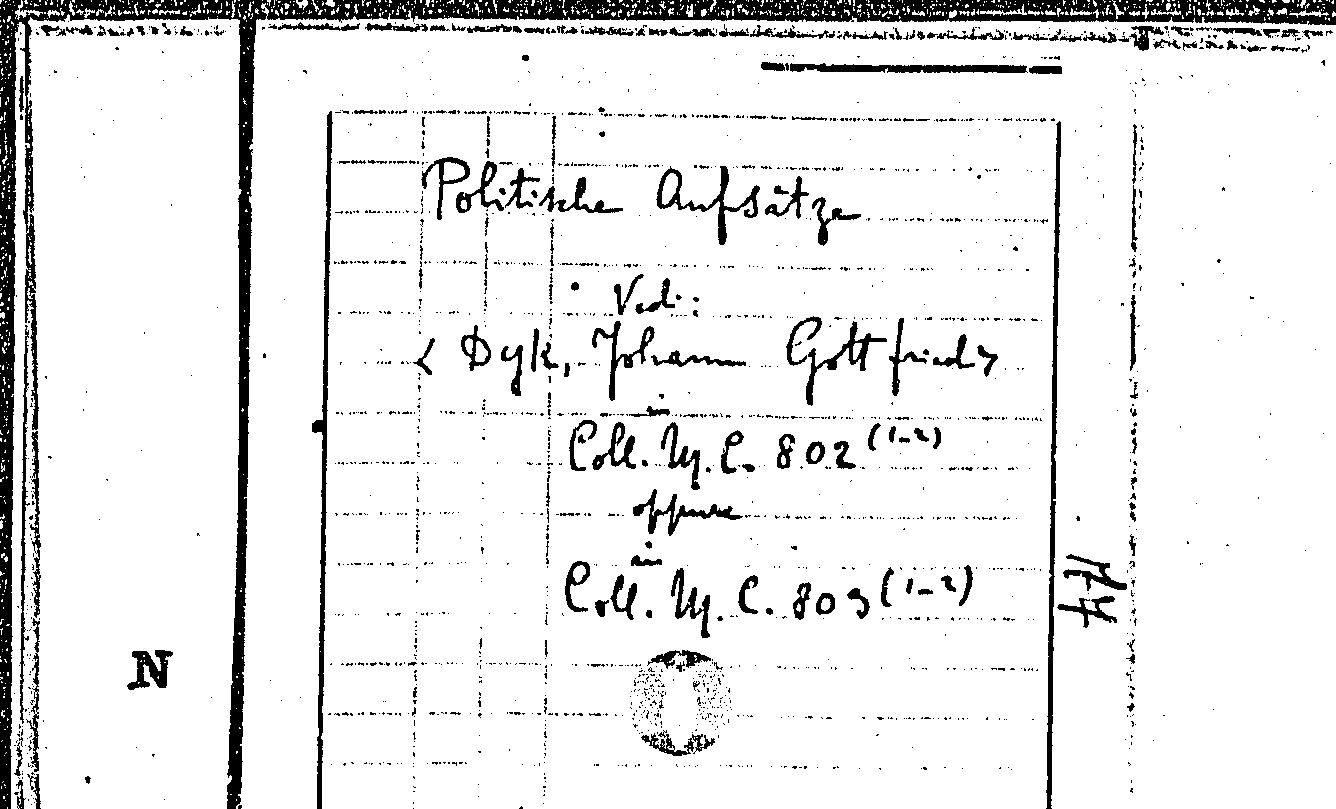 Politische Aufsätze
Vedi:
< Dyk, Johann Gottfried>
in
Coll. M. C. 802 (1-2)
oppure
in
Coll. M. C. 803 (1-2)
N